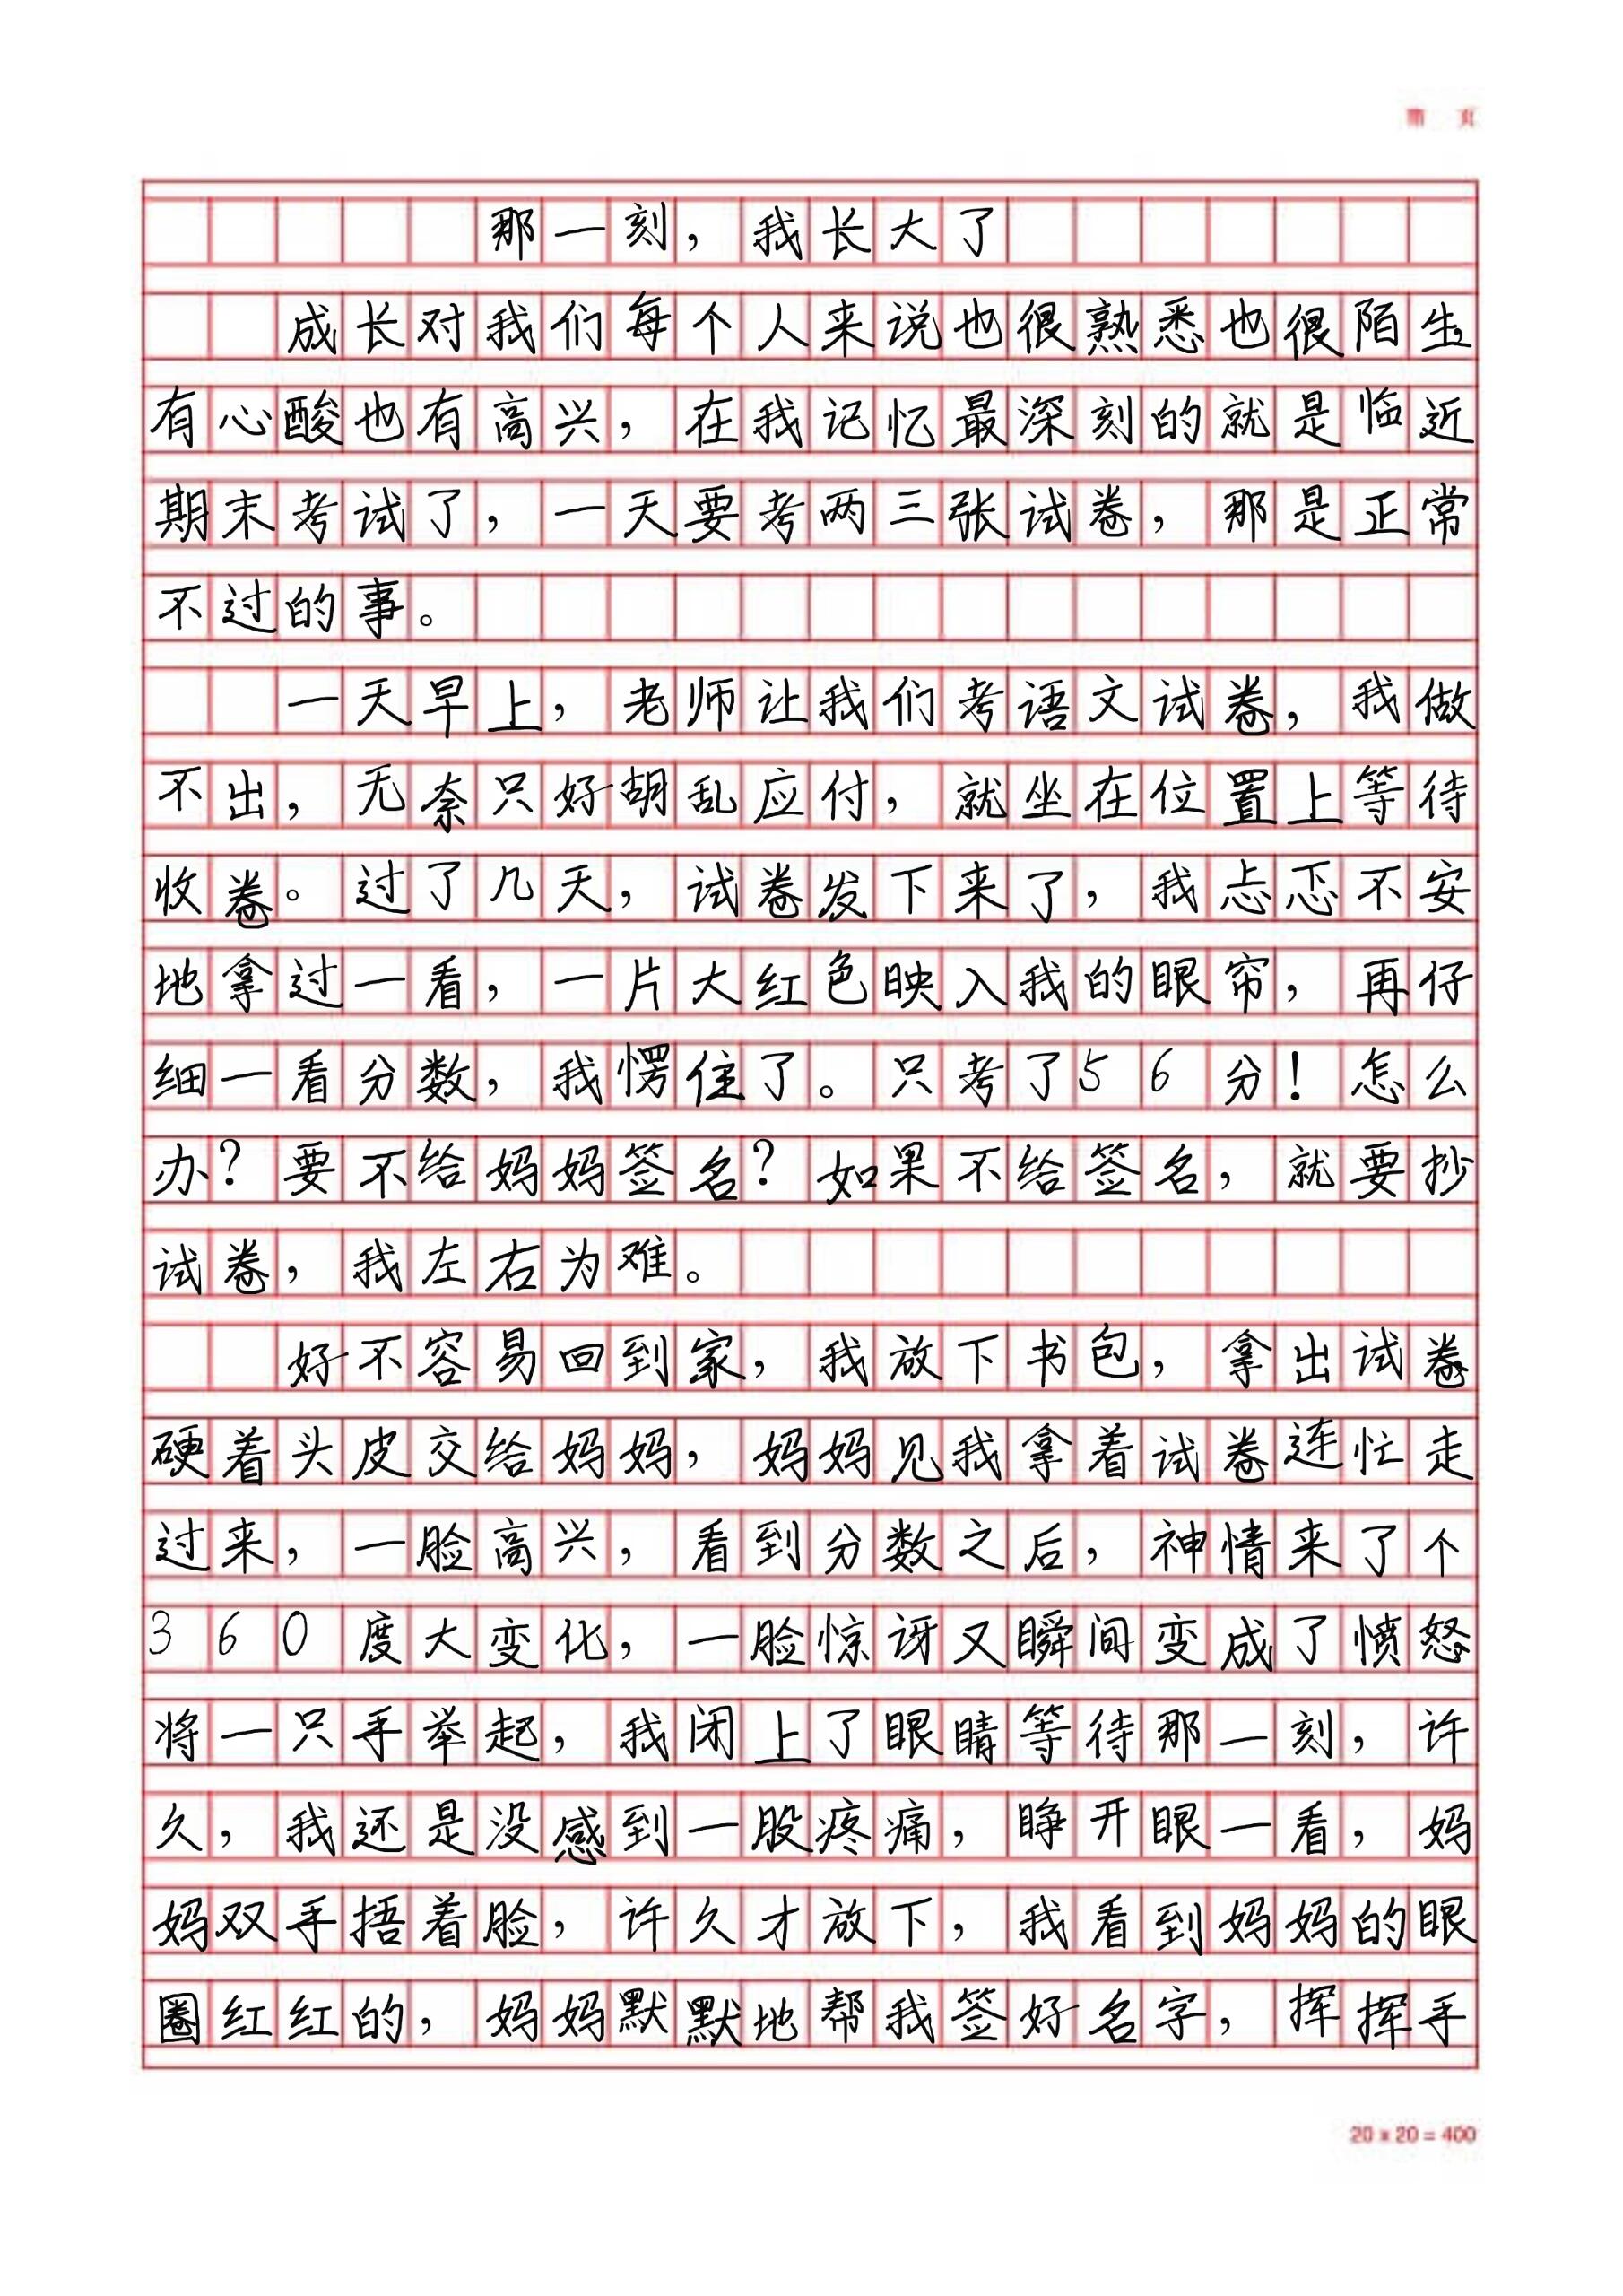 第 页
那一刻，我长大了
成长对我们每个人来说也很熟悉也很陌生
有心酸也有高兴，在我记忆最深刻的就是临近
期末考试了，一天要考两三张试卷，那是正常
不过的事。
一天早上，老师让我们考语文试卷，我做
不出，无奈只好胡乱应付，就坐在位置上等待
收卷。过了几天，试卷发下来了，我忐忑不安
地拿过一看，一片大红色映入我的眼帘，再仔
细一看分数，我愣住了。只考了56分！怎么
办？要不给妈妈签名？如果不给签名，就要抄
试卷，我左右为难。
好不容易回到家，我放下书包，拿出试卷
硬着头皮交给妈妈，妈妈见我拿着试卷连忙走
过来，一脸高兴，看到分数之后，神情来了个
360度大变化，一脸惊讶又瞬间变成了愤怒
将一只手举起，我闭上了眼睛等待那一刻，许
久，我还是没感到一股疼痛，睁开眼一看，妈
妈双手捂着脸，许久才放下，我看到妈妈的眼
圈红红的，妈妈默默地帮我签好名字，挥挥手
20x20=400